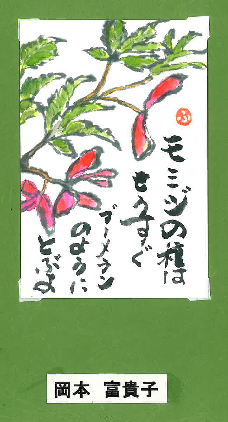 モミジの種は
せうすぐ
ブーメラン
のように
とぶよ
ふ
岡本 富貴子